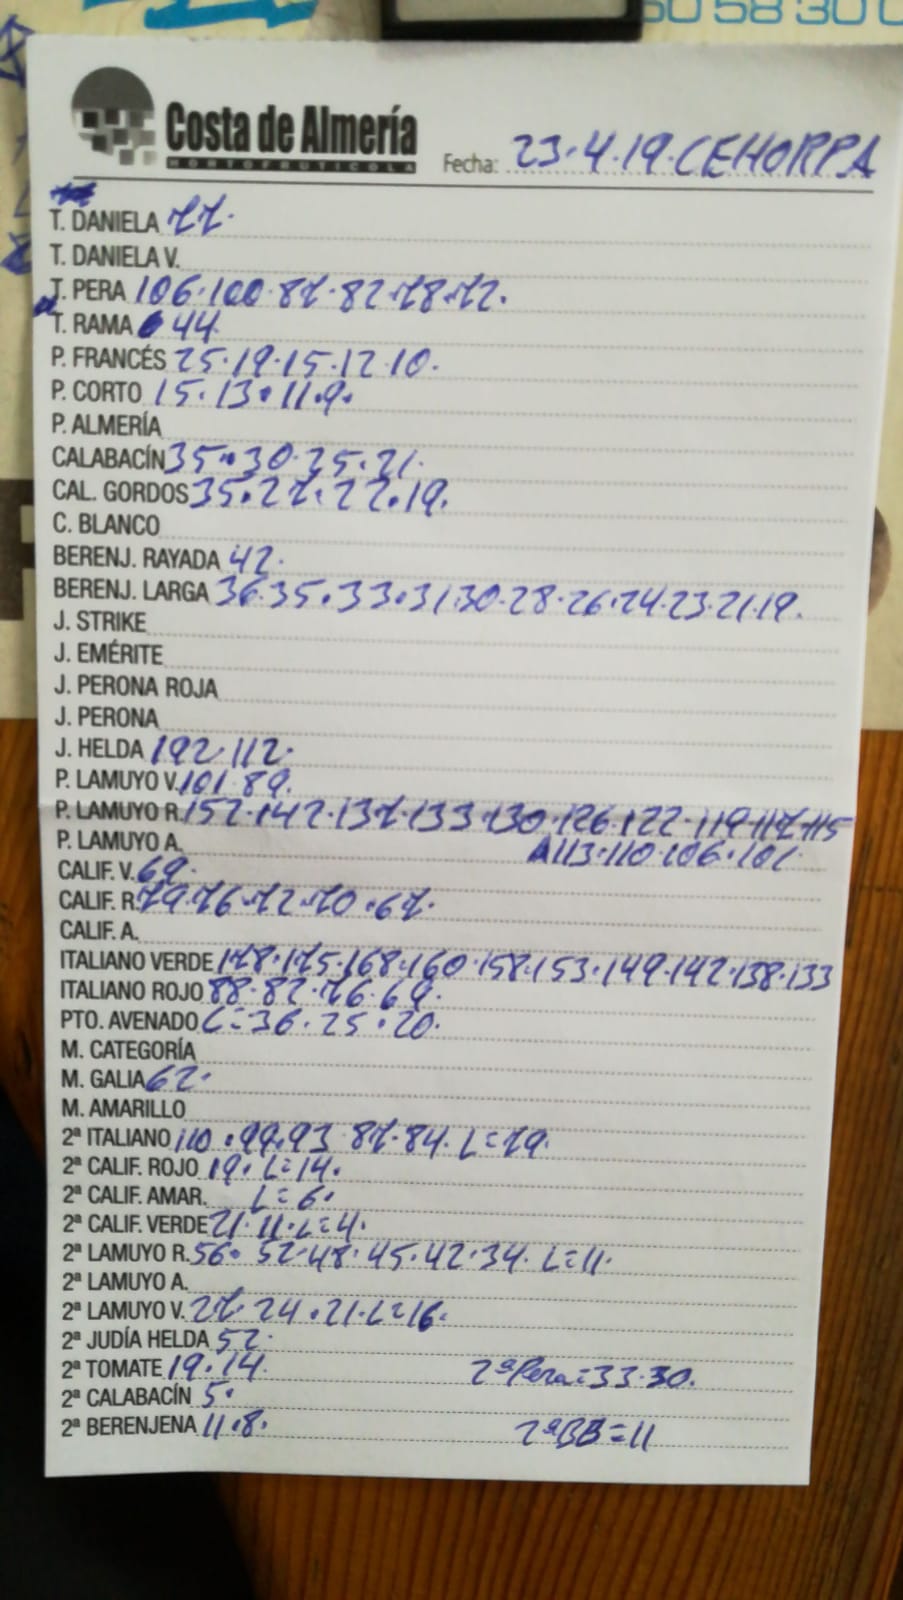 50 58 30 0
Costa de Almería
HORTOFRUTICOLA
Fecha: 23.4.19.CEHORPA
T. DANIELA 77.
T. DANIELA V.
T. PERA 106.100.87.82.78.72.
T. RAMA 44
P. FRANCÉS 25.19.15.12.10.
P. CORTO 15.13.11.9.
P. ALMERÍA
CALABACÍN 35.30.25.21.
CAL. GORDOS 35.27.22.19.
C. BLANCO
BERENJ. RAYADA 42.
BERENJ. LARGA 36.35.33.31.30.28.26.24.23.21.19.
J. STRIKE
J. EMÉRITE
J. PERONA ROJA
J. PERONA
J. HELDA 192.112.
P. LAMUYO V. 101.89.
P. LAMUYO R. 152.142.137.133.130.126.122.119.117.115
P. LAMUYO A. 113.110.106.101.
CALIF. V. 69.
CALIF. R. 79.76.72.70.67.
CALIF. A.
ITALIANO VERDE 178.175.168.160.158.153.149.142.138.133
ITALIANO ROJO 88.82.76.69.
PTO. AVENADO L=36.25.20.
M. CATEGORÍA
M. GALIA 62.
M. AMARILLO
2ª ITALIANO 110.99.93.87.84.L=79.
2ª CALIF. ROJO 19.L=14.
2ª CALIF. AMAR. L=6.
2ª CALIF. VERDE 21.11.L=4.
2ª LAMUYO R. 56.52.48.45.42.34.L=11.
2ª LAMUYO A.
2ª LAMUYO V. 27.24.21.L=16.
2ª JUDÍA HELDA 52.
2ª TOMATE 19.14. 2ªPera=33.30.
2ª CALABACÍN 5.
2ª BERENJENA 11.8. 2ªBB=11